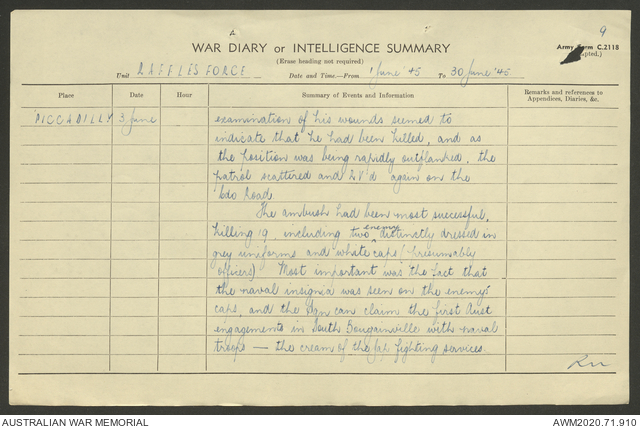 9
WAR DIARY or INTELLIGENCE SUMMARY
Army Form C.2118
(Erase heading not required)
(Adapted.)
Unit RAFFLES FORCE Date and Time.—From 1 June '45 To 30 June '45
Place Date Hour Summary of Events and Information Remarks and references to Appendices, Diaries, &c.
PICCADILLY 3 June examination of his wounds seemed to
indicate that he had been killed, and as
the position was being rapidly outflanked, the
patrol scattered and RV'd again on the
Cdo Road.
The ambush had been most successful,
killing 19 including two enemy distinctly dressed in
grey uniforms and white caps (presumably
officers). Most important was the fact that
the naval insignia was seen on the enemy
caps, and the can claim the first Aust
engagements in South Bougainville with naval
troops — the cream of the Jap fighting services.
AUSTRALIAN WAR MEMORIAL
AWM2020.71.910